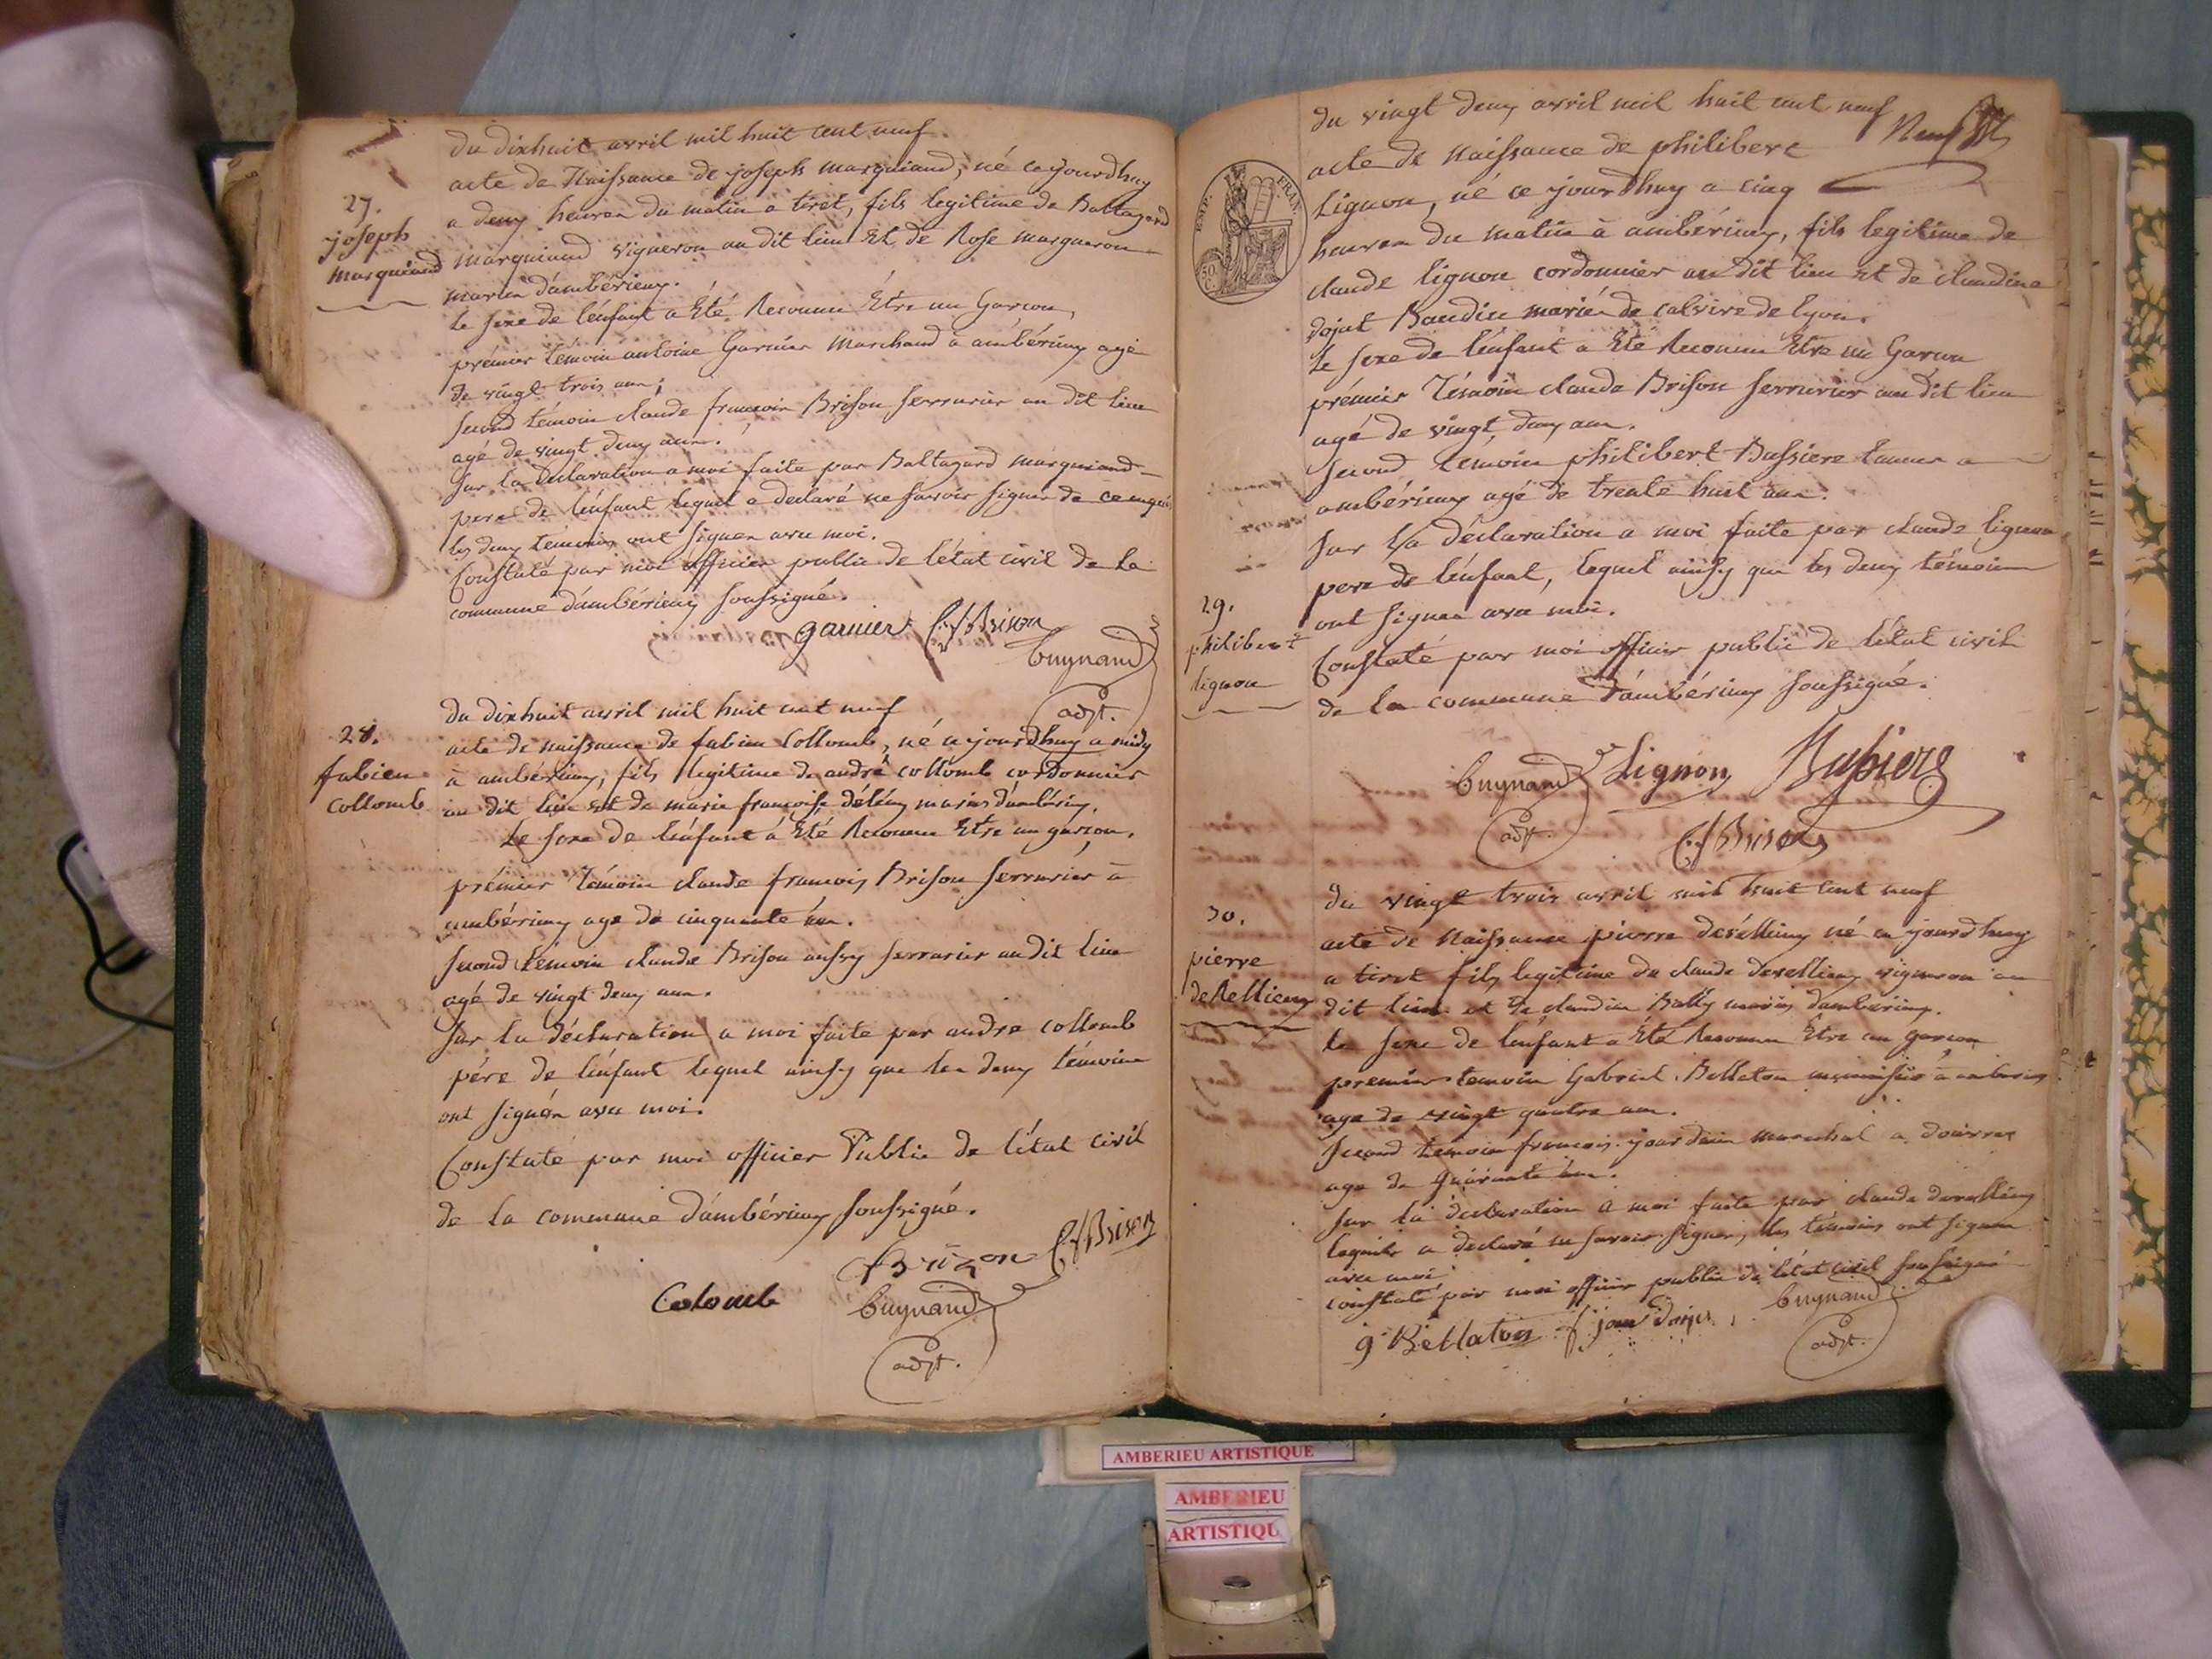 du dixhuit avril mil huit cent neuf.
27.
joseph
marguiand
acte de Naissance de joseph marguiand, né cejourdhuy
a deux heures du matin a tiret, fils legitime de Baltazard
marguiand vigneron au dit lieu Et de Rose margueron
mariés d'ambérieux.
Le sexe de l'énfant a Eté Reconnu Etre un Garçon,
prémier témoin antoine Garnier Marchand a ambérieux agé
de vingt trois ans;
second témoin claude francois Brison serrurier au dit lieu
agé de vingt deux ans.
Sur la declaration a moi faite par Baltazard marguiand
pere de l'énfant lequel a declaré ne savoir signer de ce enquis
les deux témoins ont signés avec moi.
Constaté par moi officier public de l'état civil de la
commune d'ambérieux soussigné.
garnier C f Brison
Cuynand
adjt.
28.
fabien
collomb
du dixhuit avril mil huit cent neuf
acte de naissance de fabien Collomb, né cejourdhuy a midy
à ambérieux, fils legitime de andré collomb cordonnier
au dit lieu et de marie françoise déléaz mariés d'ambérieux.
Le sexe de l'énfant a Eté Reconnu Etre un garçon.
prémier témoin claude françois Brison serrurier à
ambérieux age de cinquante ans.
second témoin claude Brison aussy serrurier au dit lieu
agé de vingt deux ans.
Sur la déclaration a moi faite par andré collomb
pére de l'énfant lequel ainsy que les deux témoins
ont signés avec moi.
Constaté par moi officier Public de l'état civil
de la commune d'ambérieux soussigné.
Brizon C f Brison
Colomb Cuynand
adjt.
du vingt deux avril mil huit cent neuf
EMP. FRAN.
50
acte de Naissance de philibert
Lignon, né ce jourdhuy a cinq
heures du matin à ambérieux, fils legitime de
claude lignon cordonnier au dit lieu et de claudine
dojat Baudin mariés de calvire de lyon.
Le sexe de l'énfant a Eté Reconnu Etre un Garçon
prémier Témoin claude Brison serrurier au dit lieu
agé de vingt deux ans.
second temoin philibert Bussiere tanneur a
ambérieux agé de trente huit ans.
Sur la déclaration a moi faite par claude lignon
pere de l'énfant, lequel ainsy que les deux témoins
ont signés avec moi.
29.
philibert
lignon
Constaté par moi officier public de l'état civil
de la commune d'ambérieux soussigné.
Cuynand Lignon Bussiere
adjt. C f Brison
30.
pierre
deRellieux
du vingt trois avril mil huit cent neuf
acte de Naissance pierre derellieux né ce jourdhuy
a tiret fils legitime de claude derellieux vigneron au
dit lieu et de claudine Bally mariés d'ambérieux.
Le sexe de l'énfant a Eté Reconnu Etre un garçon
premier temoin Gabriel Bellaton menuisier à ambérieux
age de vingt quatre ans.
second temoin françois jourdain marechal a douvres
age de quarante ans.
Sur la declaration a moi faite par claude derellieux
lequel a declaré ne savoir signer, les témoins ont signés
avec moi
constaté par moi officier public de l'état civil soussigné
g Bellaton f jourdain Cuynand
adjt.
AMBERIEU ARTISTIQUE
AMBERIEU
ARTISTIQU